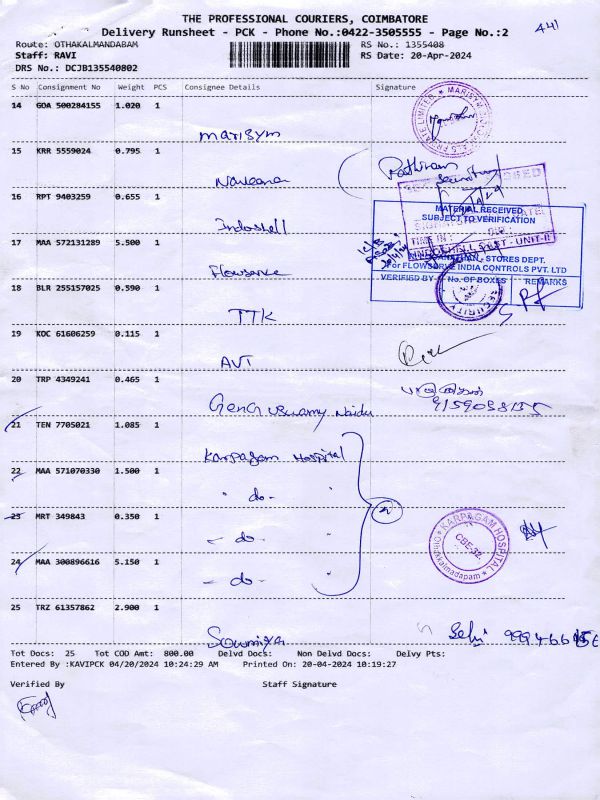 THE PROFESSIONAL COURIERS, COIMBATORE
Delivery Runsheet - PCK - Phone No.:0422-3505555 - Page No.:2
441
Route: OTHAKALMANDABAM RS No.: 1355408
Staff: RAVI RS Date: 20-Apr-2024
DRS No.: DCJB135540802
S No Consignment No Weight PCS Consignee Details Signature
14 GOA 500284155 1.020 1
marisym
15 KRR 5559024 0.795 1
Naveena
16 RPT 9403259 0.655 1
Indoshell
17 MAA 572131289 5.500 1
Flowserve
MATERIAL RECEIVED
SUBJECT TO VERIFICATION
STORES DEPT.
For FLOWSERVE INDIA CONTROLS PVT. LTD
VERIFIED BY No. OF BOXES REMARKS
SECURITY
18 BLR 255157025 0.590 1
TTK
19 KOC 61606259 0.115 1
AVT
20 TRP 4349241 0.465 1
Naidu
21 TEN 7705021 1.085 1
Karpagam Hospital
22 MAA 571070330 1.500 1
" do- "
23 MRT 349843 0.350 1
- do- "
KARPAGAM HOSPITAL
CBE-32.
24 MAA 300896616 5.150 1
- do- "
25 TRZ 61357862 2.900 1
Sowmiya
Selvi
Tot Docs: 25 Tot COD Amt: 800.00 Delvd Docs: Non Delvd Docs: Delvy Pts:
Entered By :KAVIPCK 04/20/2024 10:24:29 AM Printed On: 20-04-2024 10:19:27
Verified By Staff Signature